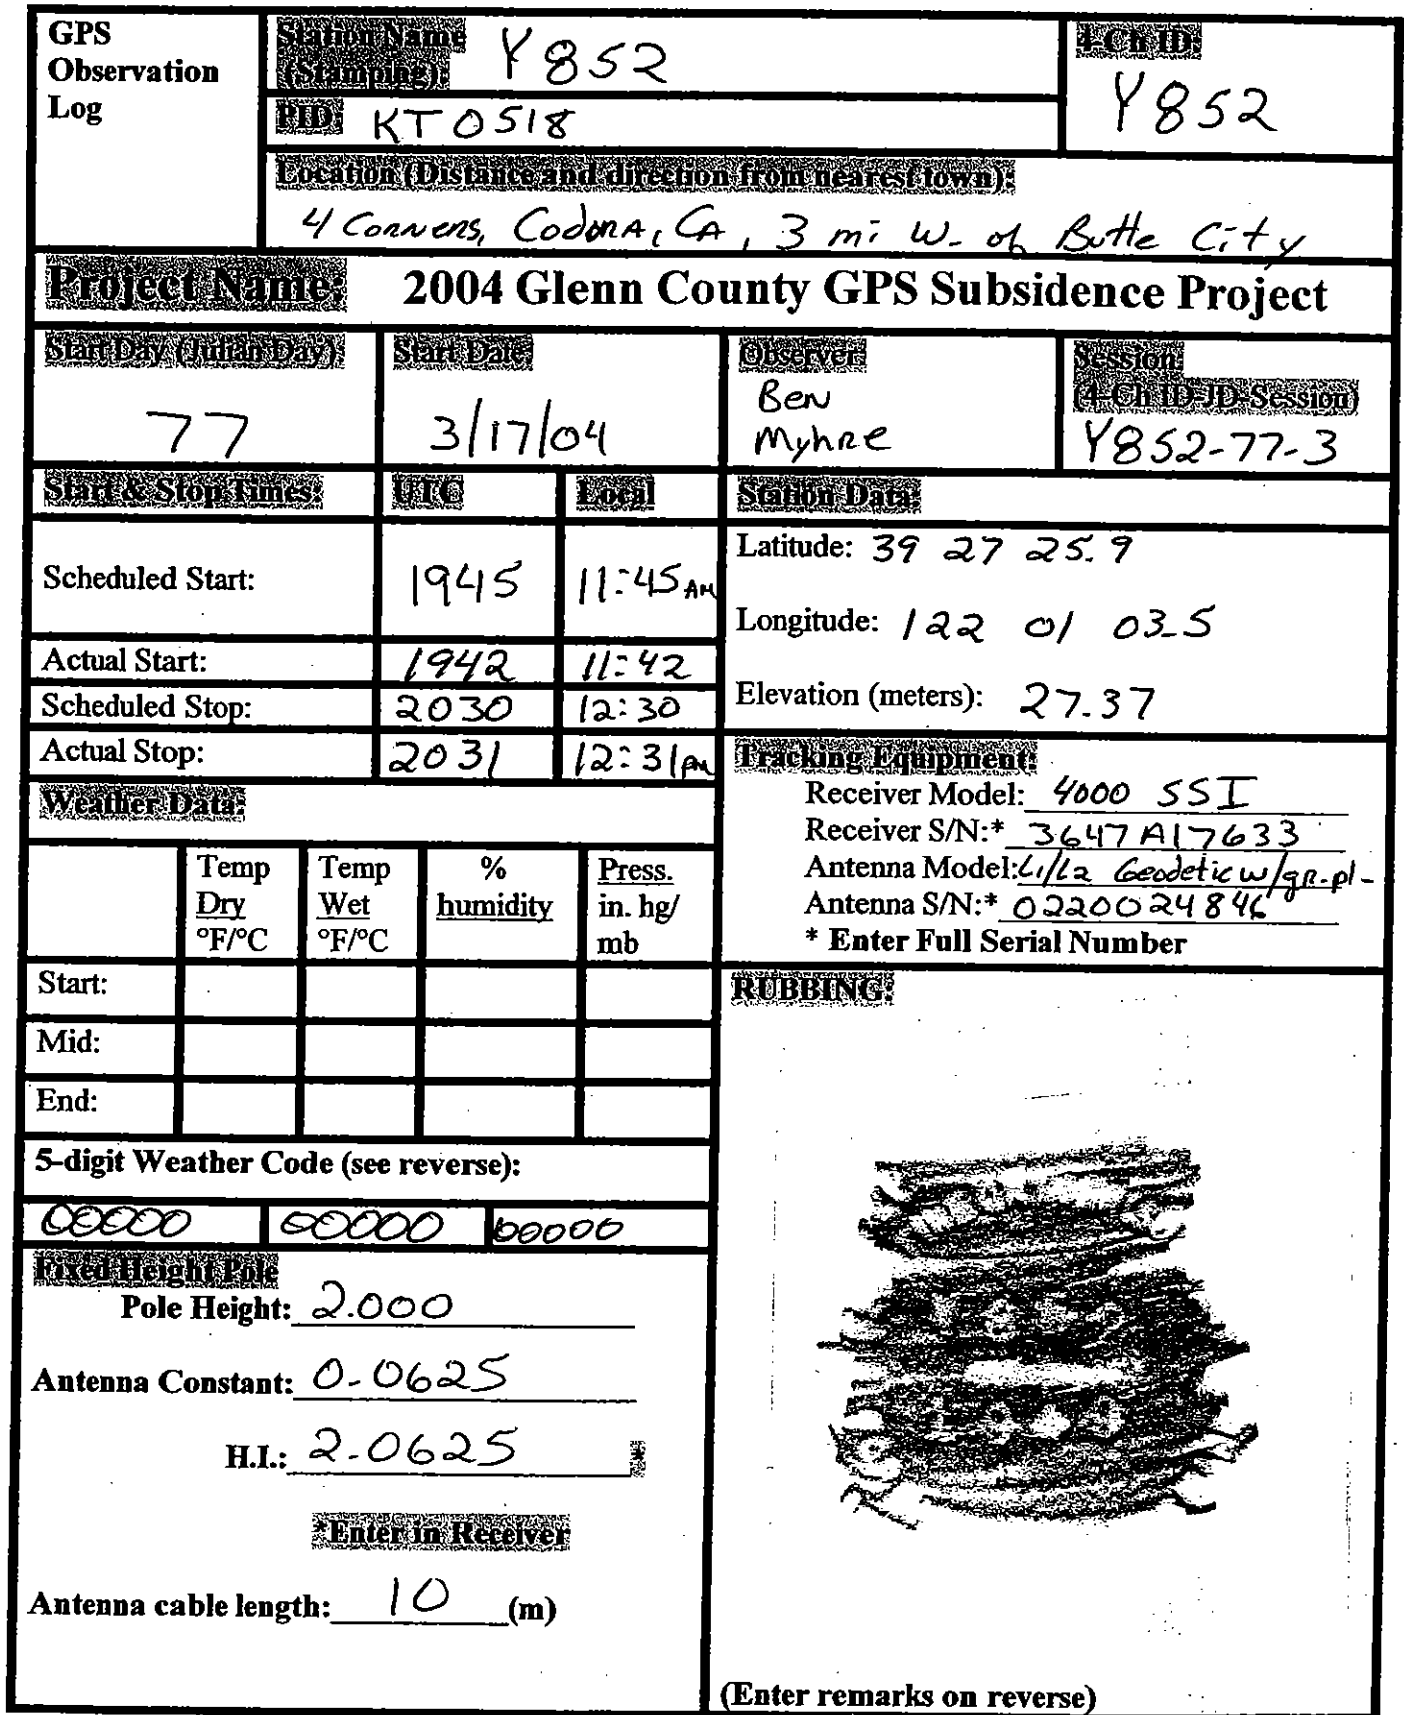 GPS
Observation
Log
Station Name
(Stamping): Y852
4-Ch ID:
Y852
PID: KT0518
Location (Distance and direction from nearest town):
4 Corners, Codora, CA, 3 mi W. of Butte City
Project Name: 2004 Glenn County GPS Subsidence Project
Start Day (Julian Day):
77
Start Date
3/17/04
Observer:
Ben
Myhre
Session:
(4-Ch ID-JD-Session)
Y852-77-3
Start & Stop Times: UTC Local
Scheduled Start: 1945 11:45 AM
Actual Start: 1942 11:42
Scheduled Stop: 2030 12:30
Actual Stop: 2031 12:31 pm
Station Data:
Latitude: 39 27 25.9
Longitude: 122 01 03.5
Elevation (meters): 27.37
Tracking Equipment:
Receiver Model: 4000 SSI
Receiver S/N:* 3647A17633
Antenna Model: L1/L2 Geodetic w/gr.pl.
Antenna S/N:* 0220024846
* Enter Full Serial Number
Weather Data:
Temp
Dry
°F/°C
Temp
Wet
°F/°C
%
humidity
Press.
in. hg/
mb
Start:
Mid:
End:
5-digit Weather Code (see reverse):
00000 00000 00000
Fixed Height Pole
Pole Height: 2.000
Antenna Constant: 0.0625
H.I.: 2.0625 *
*Enter in Receiver
Antenna cable length: 10 (m)
RUBBING:
(Enter remarks on reverse)